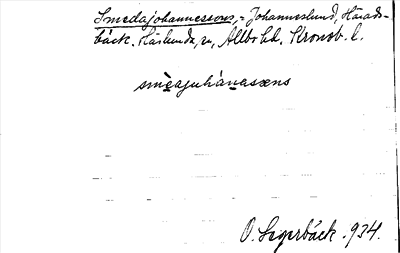 Smedajohannessons, = Johanneslund, Härads-
bäck. Härlunda, sn, Allbo hd. Kronob. l.
smèajuhànasæns
O. Segerbäck. 934.